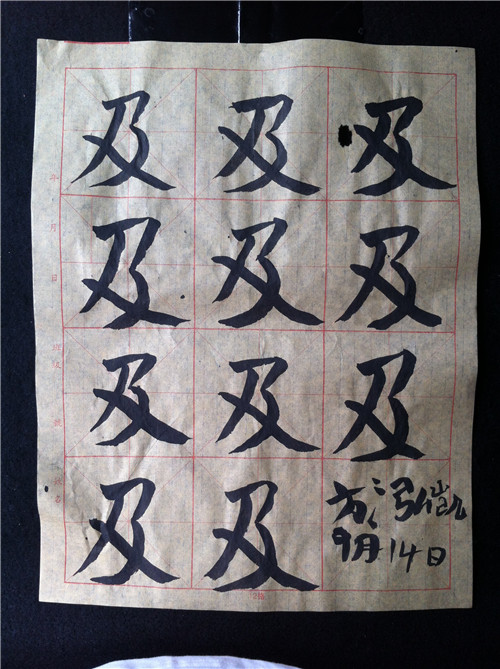 及 及 及
及 及 及
及 及 及
及 及
方
9月14日
年 月 日